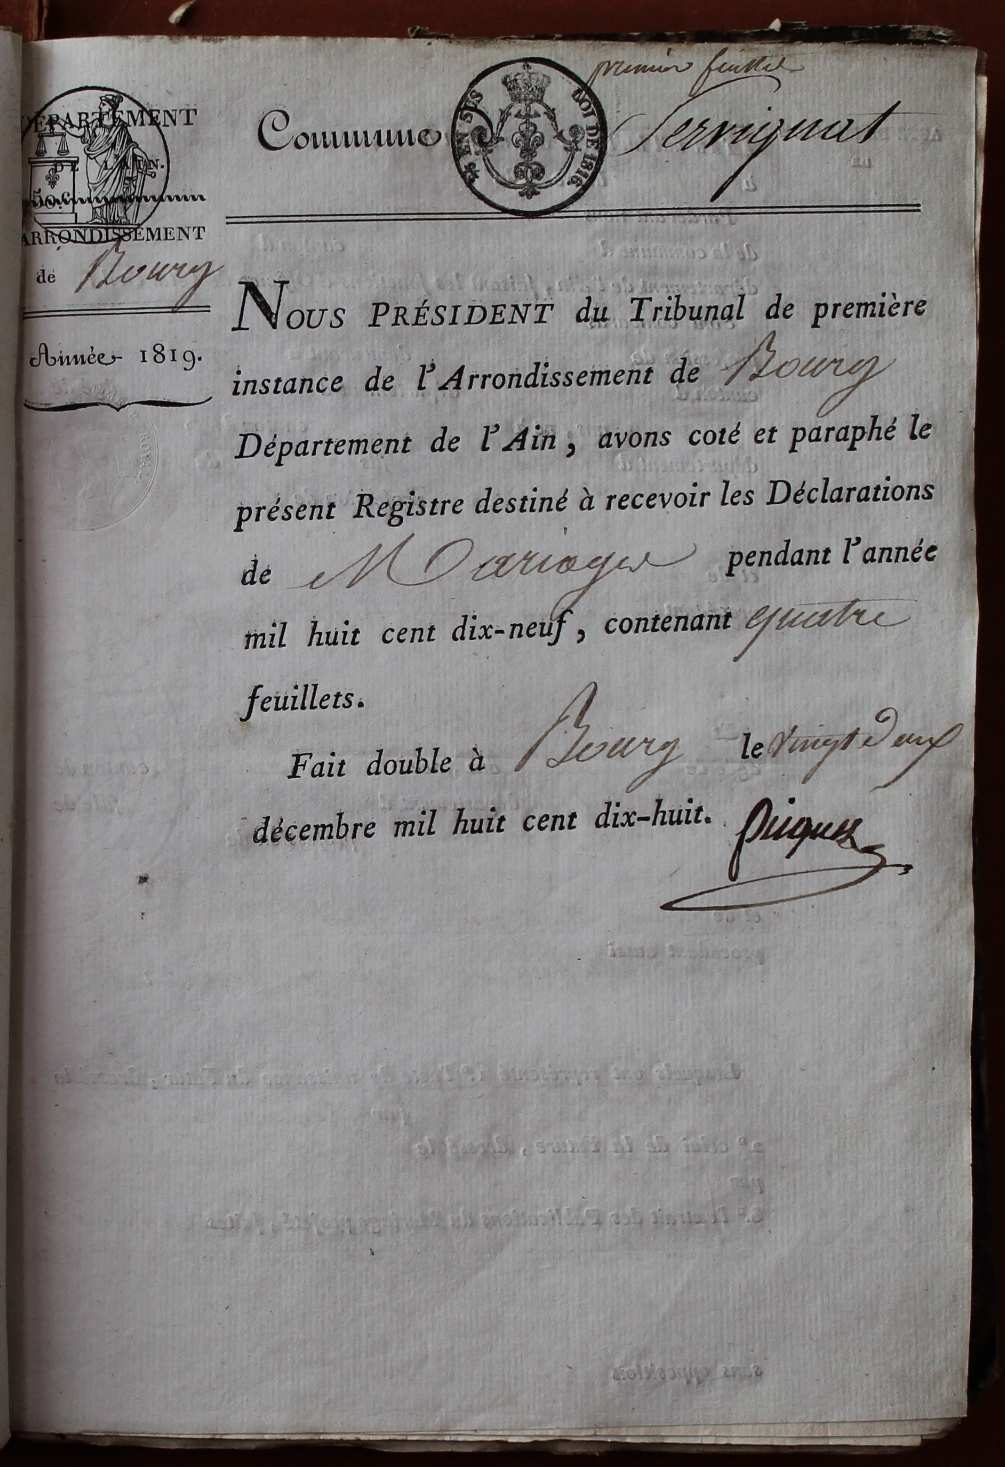 premier feuillet
DÉPARTEMENT
DE L'AIN.
50 c.
ARRONDISSEMENT
de Bourg
Année 1819.
Commune de Servignat
EN SUS
LOI DE 1816.
NOUS PRÉSIDENT du Tribunal de première
instance de l'Arrondissement de Bourg
Département de l'Ain, avons coté et paraphé le
présent Registre destiné à recevoir les Déclarations
de Mariages pendant l'année
mil huit cent dix-neuf, contenant quatre
feuillets.
Fait double à Bourg le vingt deux
décembre mil huit cent dix-huit.